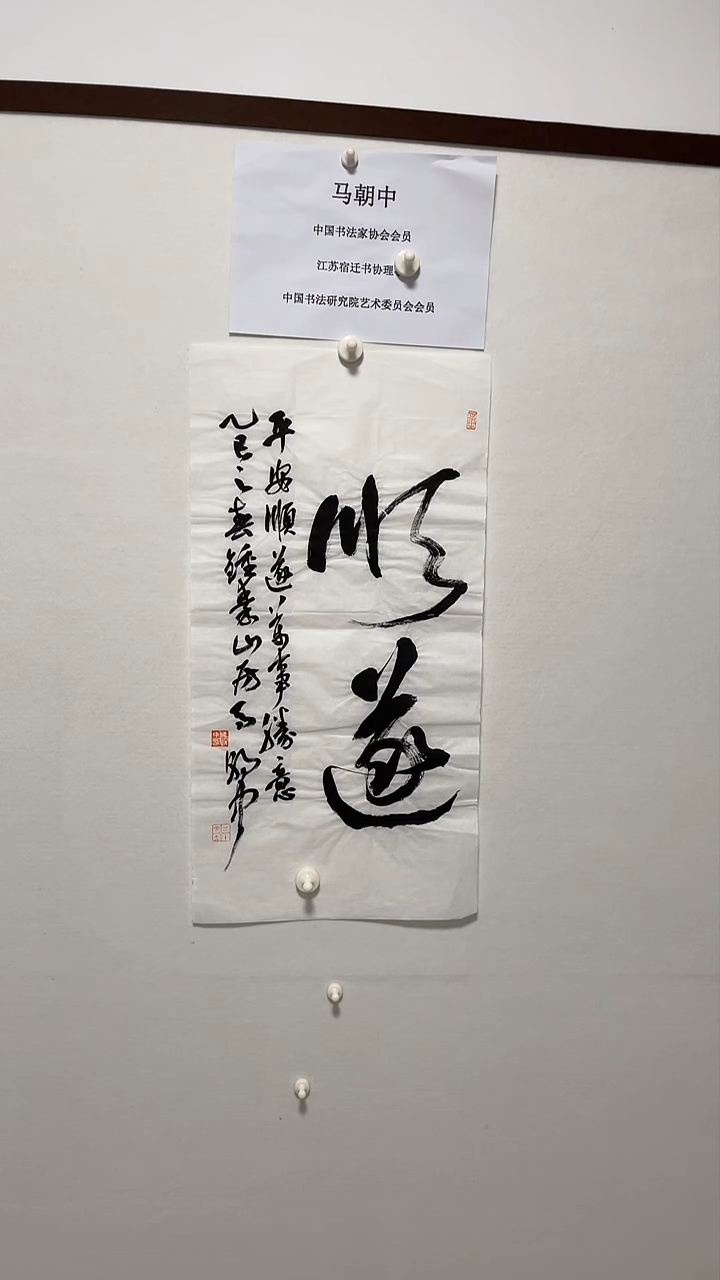 马朝中
中国书法家协会会员
江苏宿迁书协理
中国书法研究院艺术委员会会员
順遂
平安順遂萬事勝意
乙巳之春鍾壽山房馬朝中